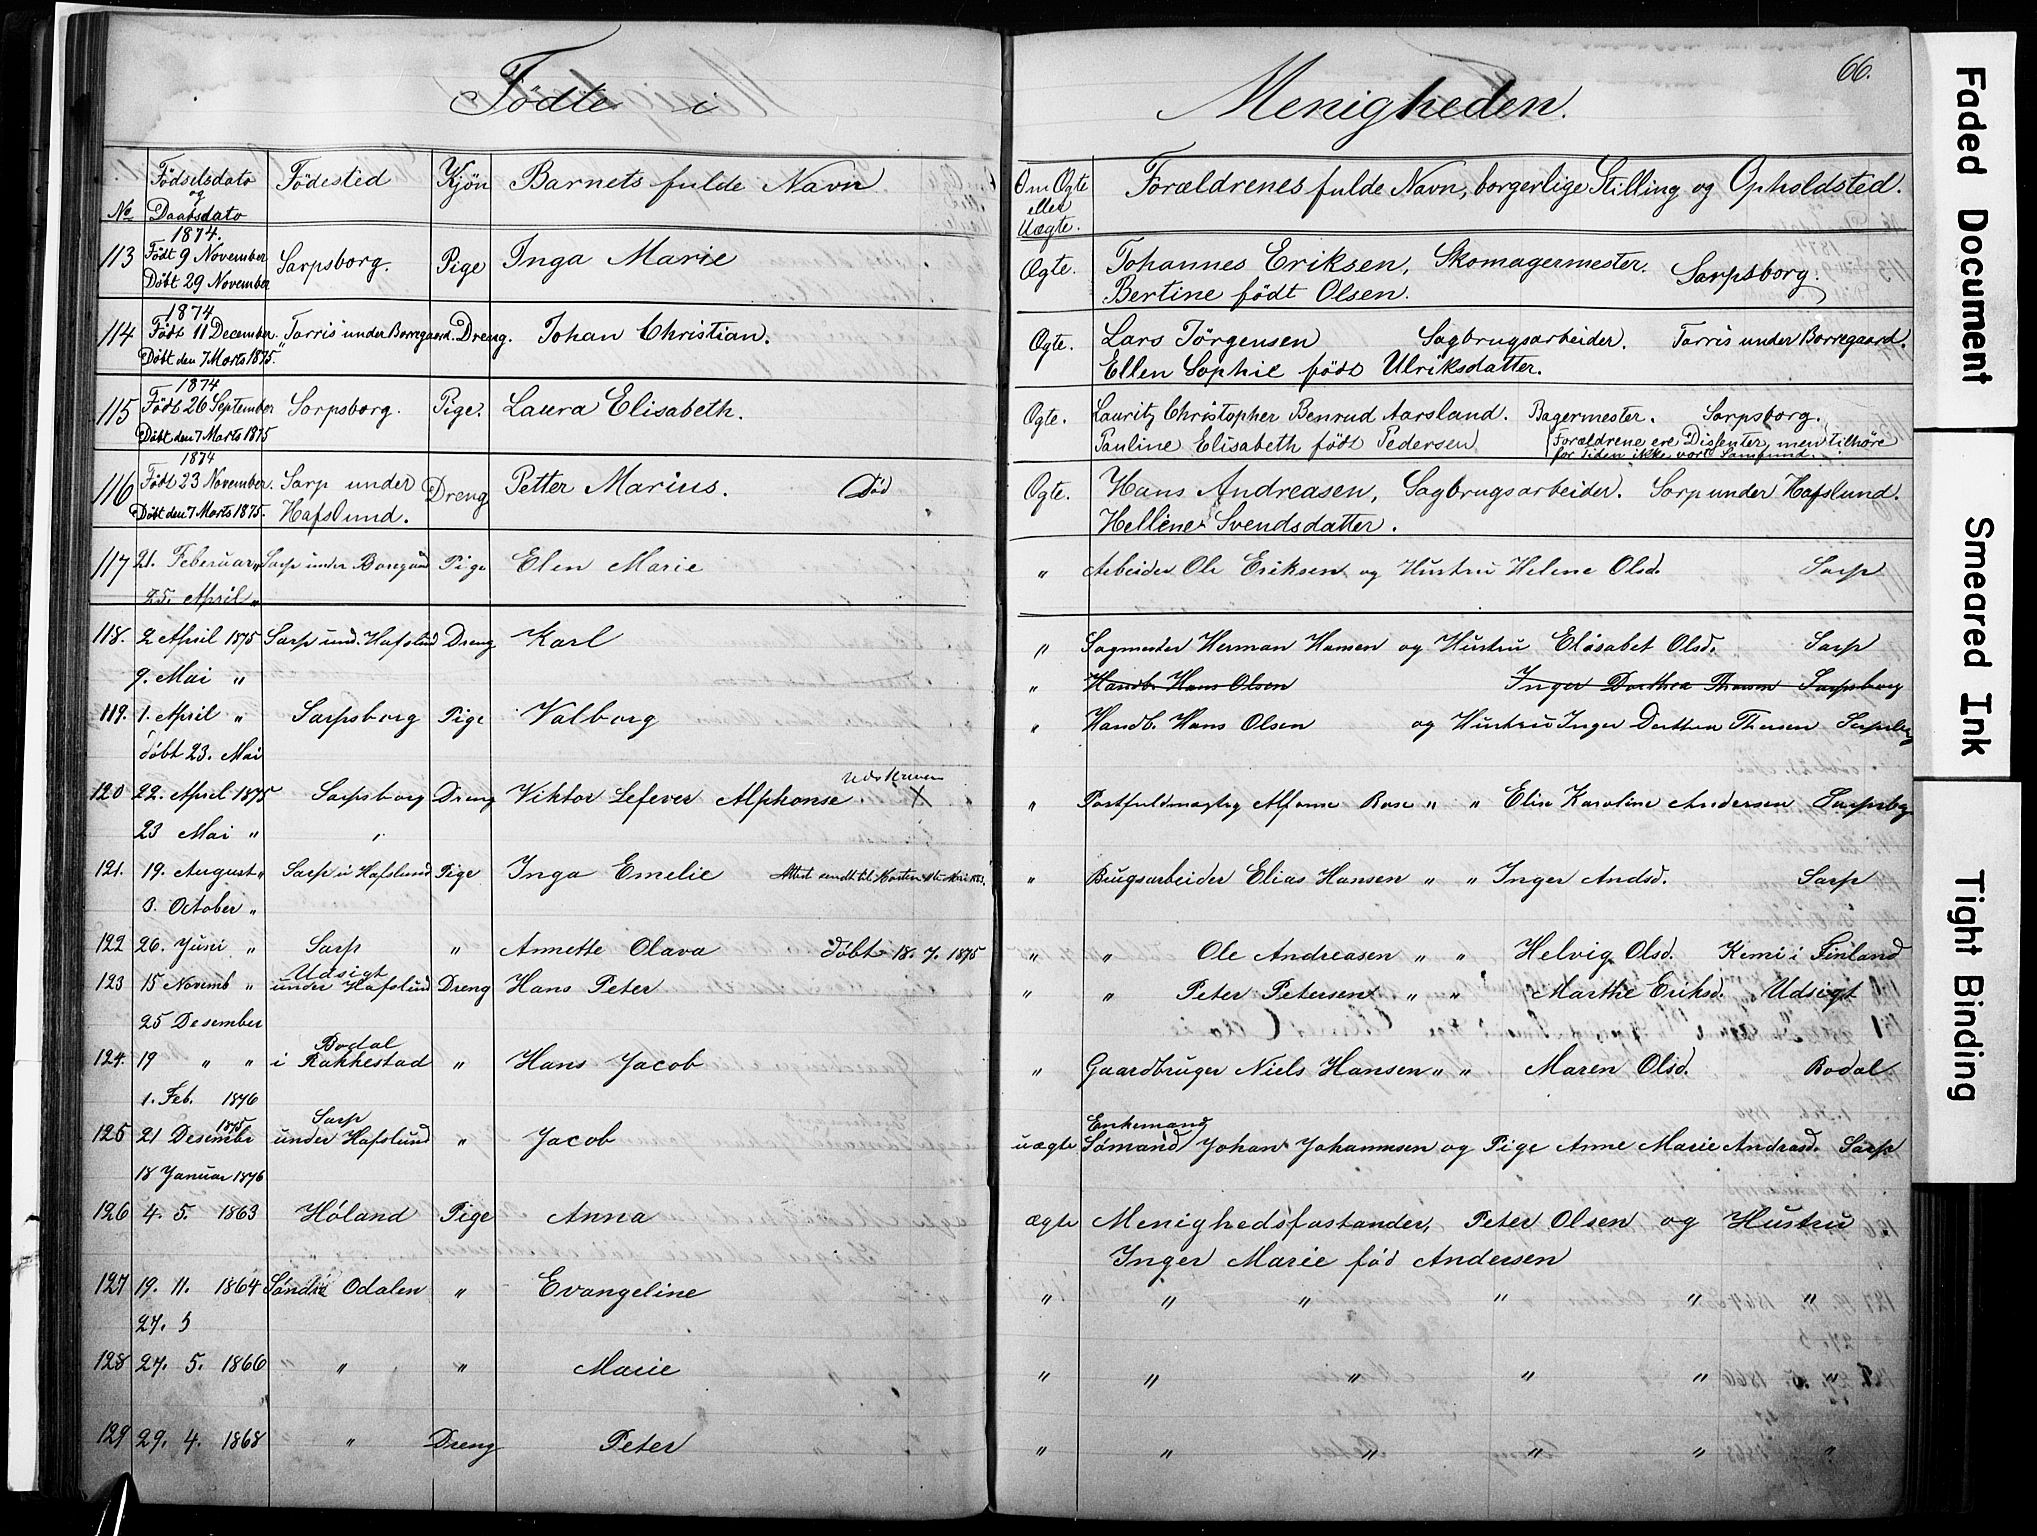 Födte i Menigheden.
66.
No
Födselsdato og Daabsdato
Födested
Kjön
Barnets fulde Navn
Om Ægte eller Uægte.
Forældrenes fulde Navn, borgerlige Stilling og Opholdsted.
1874.
113 Födt 9 November Sarpsborg. Pige Inga Marie Ægte. Johannes Eriksen, Skomagermester. Sarpsborg.
Döbt 29 November Bertine födt Olsen.
1874
114 Födt 11 December. Tarris under Borregaard. Dreng. Johan Christian. Ægte. Lars Jörgensen Sagbrugsarbeider. Tarris under Borregaard.
Döbt den 7 Marts 1875. Ellen Sophie födt Ulriksdatter.
1874
115 Födt 26 September Sarpsborg. Pige. Laura Elisabeth. Ægte. Lauritz Christopher Benrud Aarsland. Bagermester. Sarpsborg.
Döbt den 7 Marts 1875 Pauline Elisabeth födt Pedersen (Forældrene ere Dissenter, men tilhöre
for tiden ikke vort Samfund.
1874
116 Födt 23 November. Sarp under Dreng Petter Marius. Död Ægte. Hans Andreasen, Sagbrugsarbeider. Sarp under Hafslund.
Döbt den 7 Marts 1875. Hafslund. Helline Svendsdatter.
117 21. Februar " Sarp under Boregaard Pige Elen Marie " Arbeider Ole Eriksen og Hustru Helene Olsd. Sarp
25. April "
118. 2 April 1875 Sarp und. Hafslund Dreng Karl " Sagmester Herman Hansen og Hustru Elisabet Olsd. Sarp
9. Mai " " Handb. Hans Olsen Inger Dorthea Thoresen Sarpsborg
119. 1. April " Sarpsborg Pige Valborg " Handb. Hans Olsen og Hustru Inger Dorthea Thoresen Sarpsborg
döbt 23. Mai
Udskreven
120 22. April 1875 Sarpsborg Dreng Viktor Lefever Alphonse X " Postfuldmægtig Alfonse Rose " " Elise Karoline Andersen Sarpsborg
23 Mai " "
121. 19. August " Sarp u Hafslund Pige Inga Emelie Attest sendt til " Brugsarbeider Elias Hansen " " Inger Andsd. Sarp
3. October "
122 26. Juni " Sarp " Annette Olava döbt 18. 7. 1875 " " Ole Andreasen " " Helvig Olsd. Kemi i Finland
Udsigt
123 15 Novemb " under Hafslund Dreng Hans Peter " " Peter Petersen " " Marthe Eriksd. Udsigt
25 Desember
Bodal
124. 19 " " i Rakkestad " Hans Jacob " Gaardbruger Niels Hansen " " Maren Olsd. Bodal
1. Feb. 1876
1875 Sarp Enkemand
125 21 Desembr under Hafslund " Jacob uægte Sömand Johan Johannesen og Pige Anne Marie Andrasd. Sarp
18 Januar 1876
126 4. 5. 1863 Höland Pige Anna ægte Menighedsforstander, Peter Olsen og Hustru
Inger Marie fød Andersen
127 19. 11. 1864 Søndre Odalen " Evangeline " " " " " "
27. 3
128 27. 5. 1866 " " " Marie " " " " " "
129 29. 4. 1868 " Dreng Peter " " " " " "
Faded Document
Smeared Ink
Tight Binding